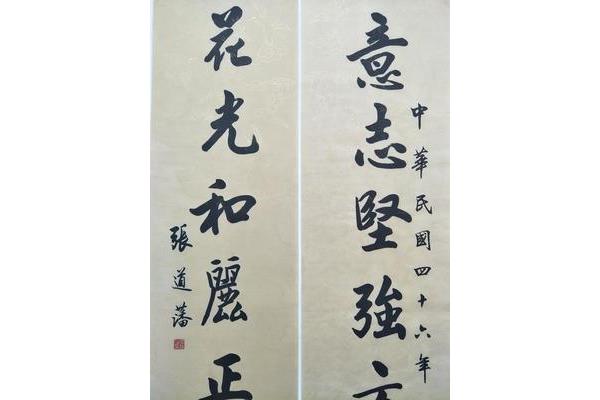 意志堅強
中華民國四十六年
花光和麗正
張道藩